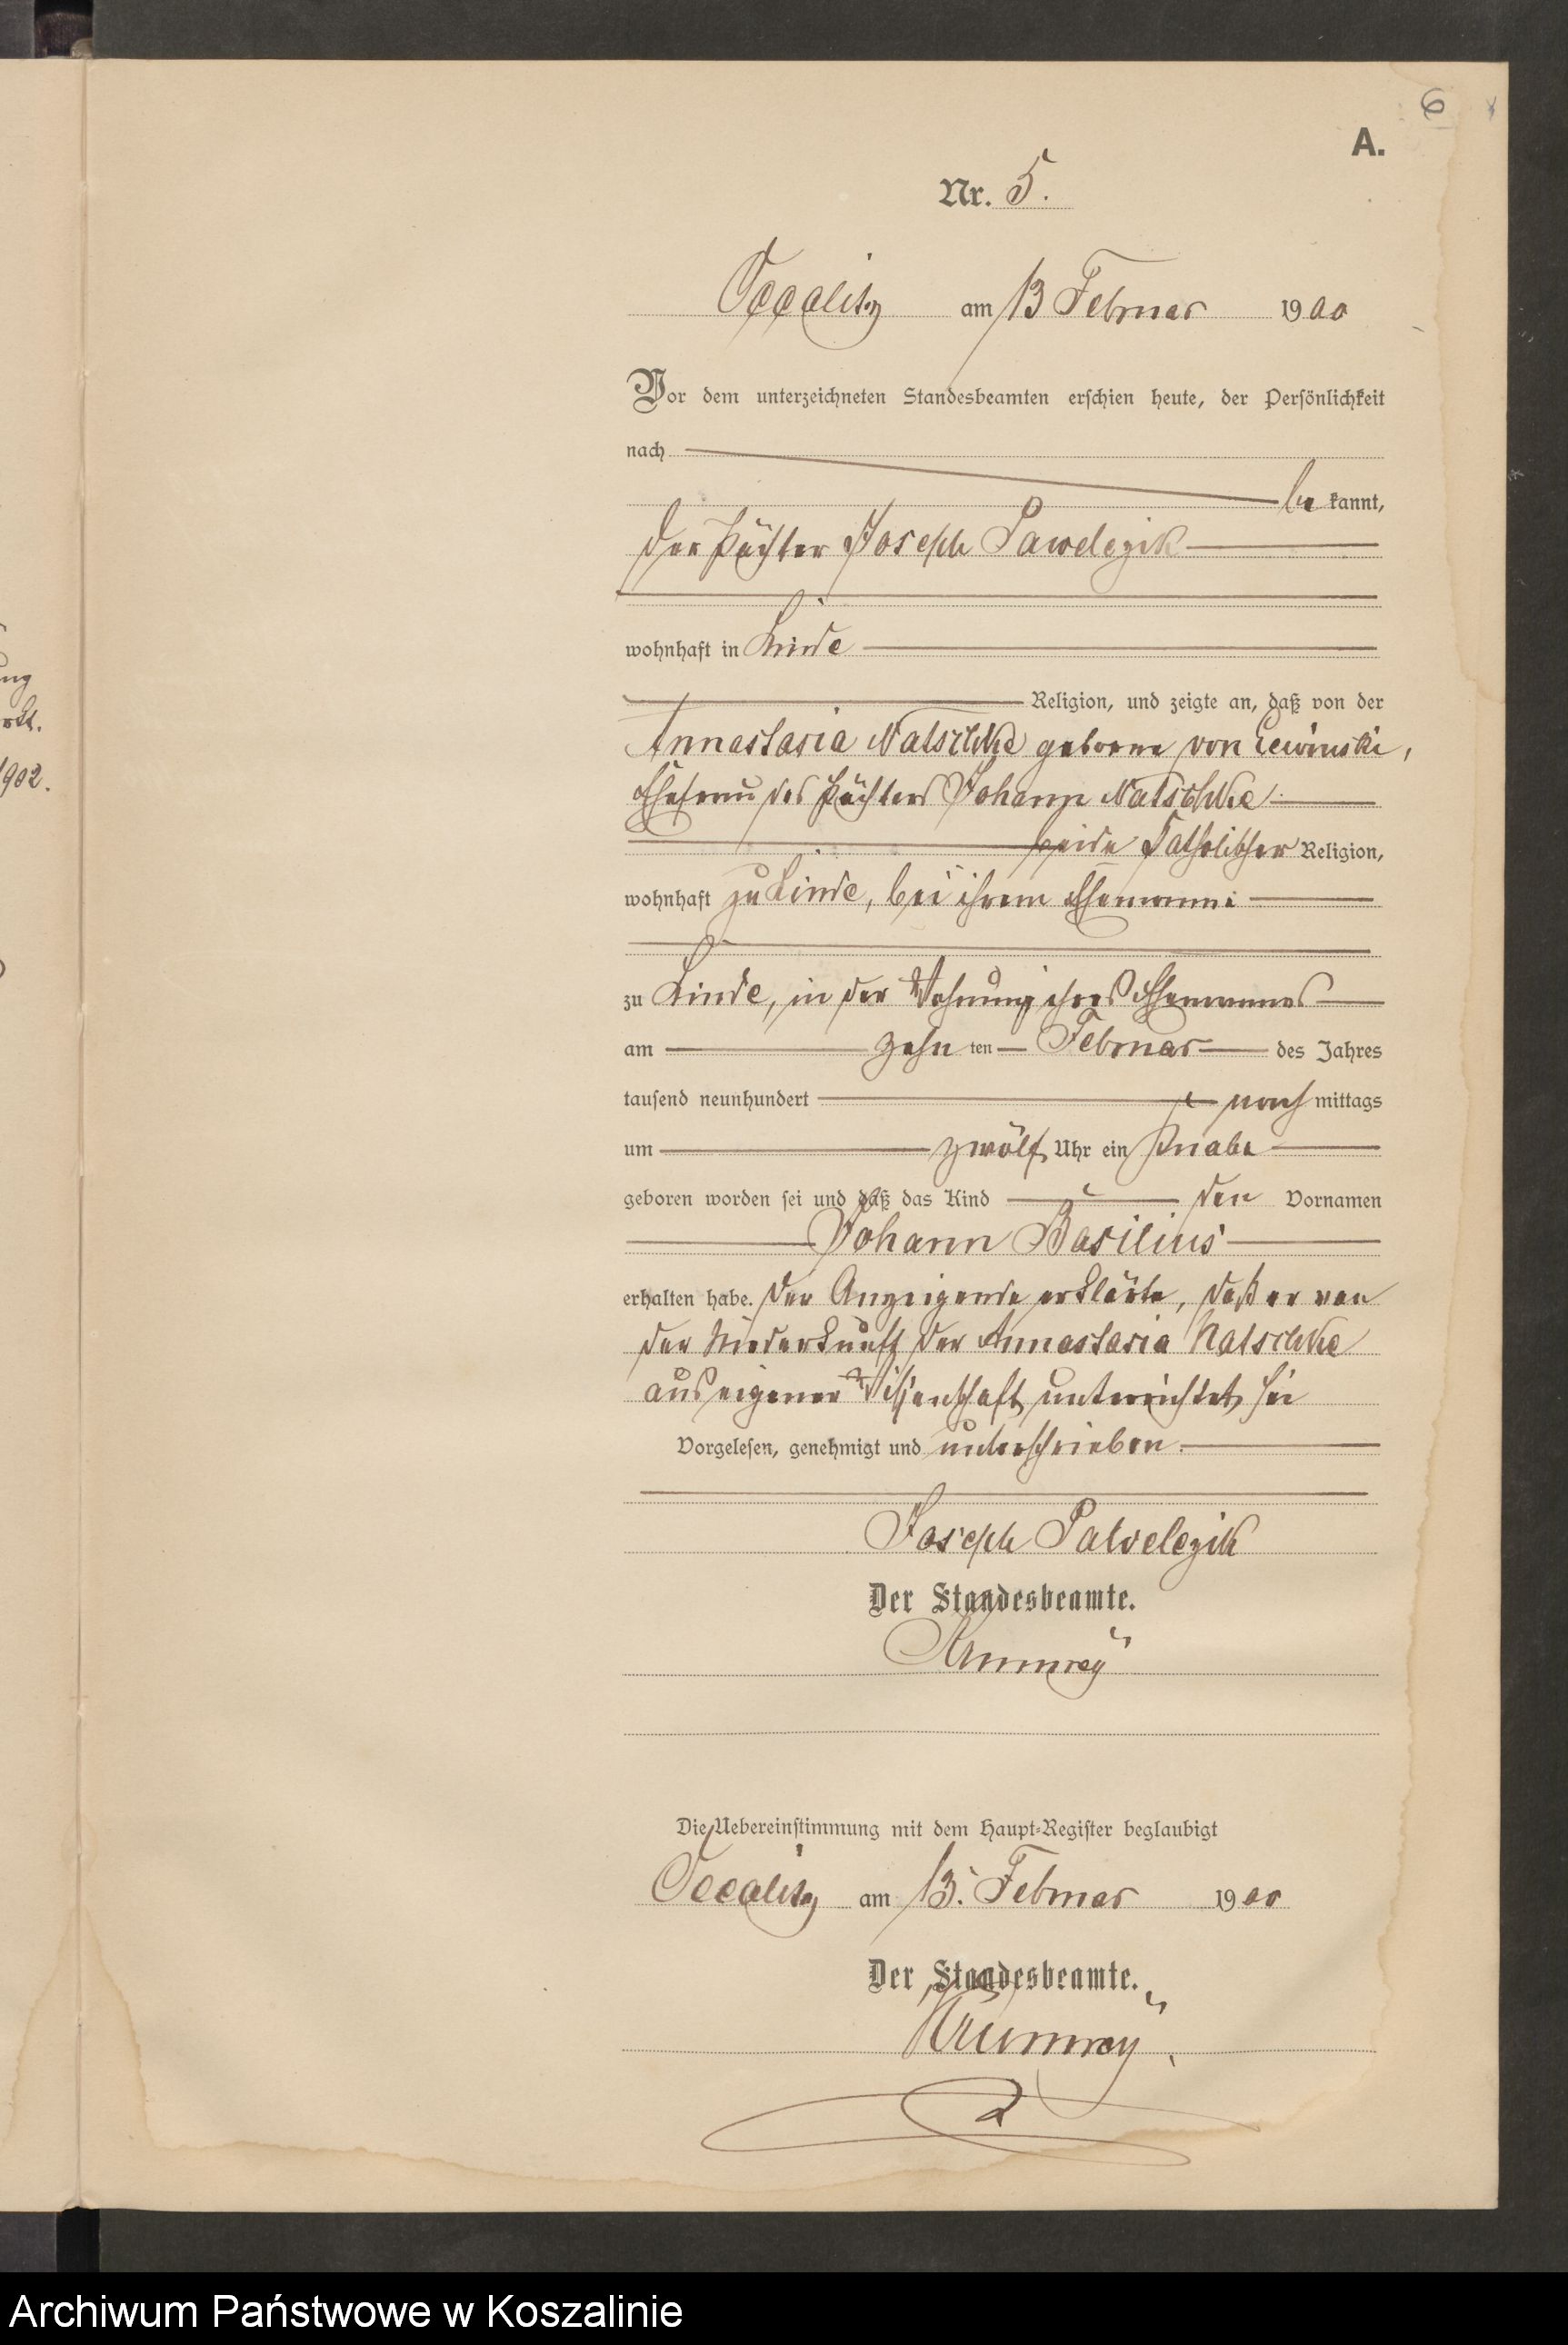 6
A.
Nr. 5.
Occalitz am 13 Februar 1900
Vor dem unterzeichneten Standesbeamten erschien heute, der Persönlichkeit
nach
be kannt,
der Pächter Joseph Pawelczik
wohnhaft in Linde
Religion, und zeigte an, daß von der
Annastasia Natschke geborne von Lewinski,
Ehefrau des Pächters Johann Natschke
beide katholischer Religion,
wohnhaft zu Linde, bei ihrem Ehemanne
zu Linde, in der Wohnung ihres Ehemannes
am zehn ten Februar des Jahres
tausend neunhundert nach mittags
um zwölf Uhr ein Knabe
geboren worden sei und daß das Kind den Vornamen
Johann Basilius
erhalten habe. Der Anzeigende erklärte, daß er von
der Niederkunft der Annastasia Natschke
aus eigener Wissenschaft unterrichtet sei
Vorgelesen, genehmigt und unterschrieben.
Joseph Pawelczik
Der Standesbeamte.
Die Uebereinstimmung mit dem Haupt-Register beglaubigt
Occalitz am 13. Februar 1900
Der Standesbeamte.
ung
1902.
Archiwum Państwowe w Koszalinie